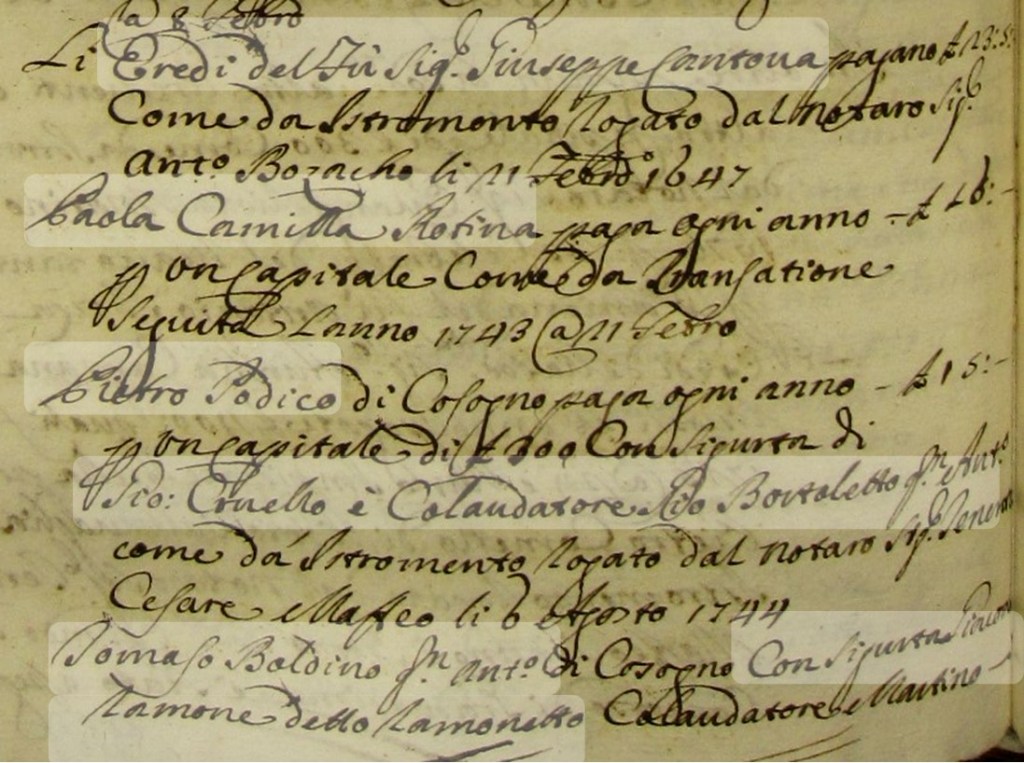 la 8 Febro
Li Eredi del Fù Sig.r Giuseppe Cantova pagano £ 23:5:
Come da Istromento logato dal Notaro Sig.r
Ant.o li 11 Febro 1647
Paola Camilla Rotina paga ogni anno - £ 16:-
p un Capitale Come da Transatione
Seguita Lanno 1743 @ 11 Febro
Pietro Podico di Cosogno paga ogni anno - £ 15:-
p un Capitale di £ 300 Con Sigurta di
Gio: Cruello è Colaudatore Gio Bortoletto qm Ant.o
come da Istromento logato dal Notaro Sig.r
Cesare Maffeo li 6 Agosto 1744
Tomaso Boldino qm Ant.o di Cosogno Con Sigurta Giacom
Lamone detto Lamonetto Colaudatore Martino -